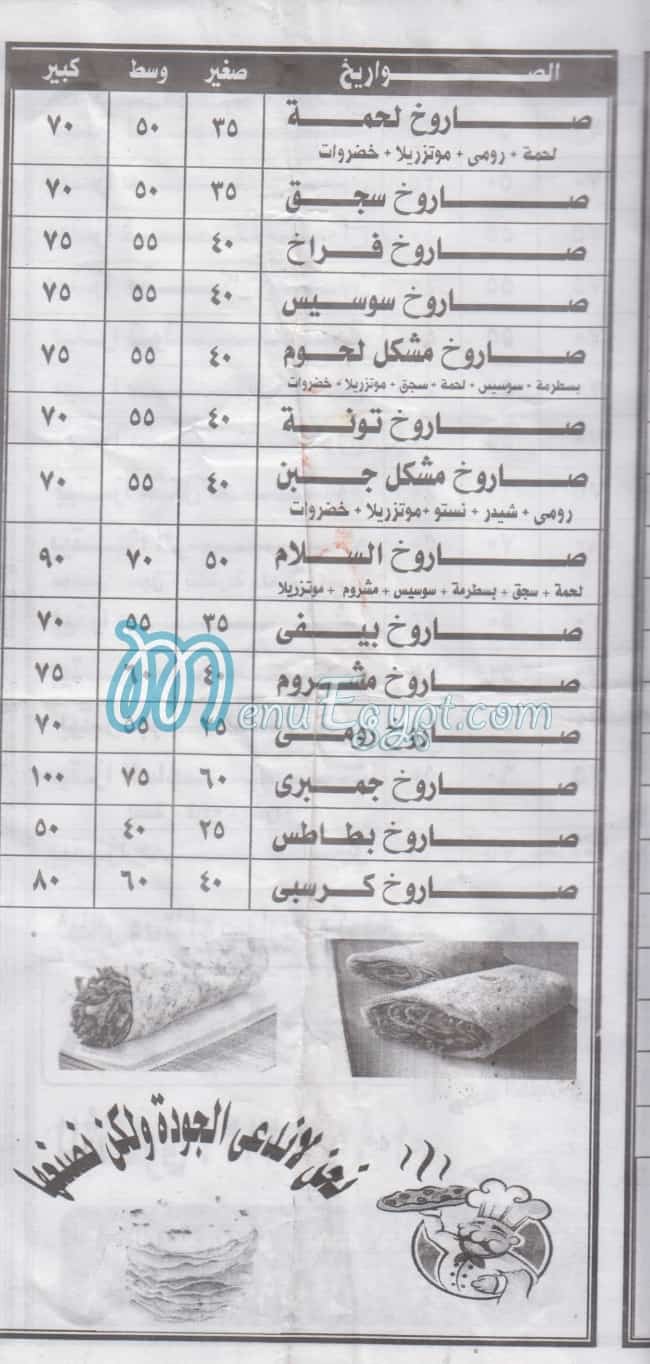 الصواريخ صغير وسط كبير
صاروخ لحمة ٣٥ ٥٠ ٧٠
لحمة + رومى + موتزريلا + خضروات
صاروخ سجق ٣٥ ٥٠ ٧٠
صاروخ فراخ ٤٠ ٥٥ ٧٥
صاروخ سوسيس ٤٠ ٥٥ ٧٥
صاروخ مشكل لحوم ٤٠ ٥٥ ٧٥
بسطرمة + سوسيس + لحمة + سجق + موتزريلا + خضروات
صاروخ تونة ٤٠ ٥٥ ٧٠
صاروخ مشكل جبن ٤٠ ٥٥ ٧٠
رومى + شيدر + نستو +موتزريلا + خضروات
صاروخ السلام ٥٠ ٧٠ ٩٠
لحمة + سجق + بسطرمة + سوسيس + مشروم + موتزريلا
صاروخ بيفى ٣٥ ٥٥ ٧٠
صاروخ مشروم ٤٠ ٦٠ ٧٥
صاروخ رومى ٣٥ ٥٥ ٧٠
MenuEgypt.com
صاروخ جمبرى ٦٠ ٧٥ ١٠٠
صاروخ بطاطس ٢٥ ٤٠ ٥٠
صاروخ كرسبى ٤٠ ٦٠ ٨٠
نحن لا ندعى الجودة ولكن نصنعها